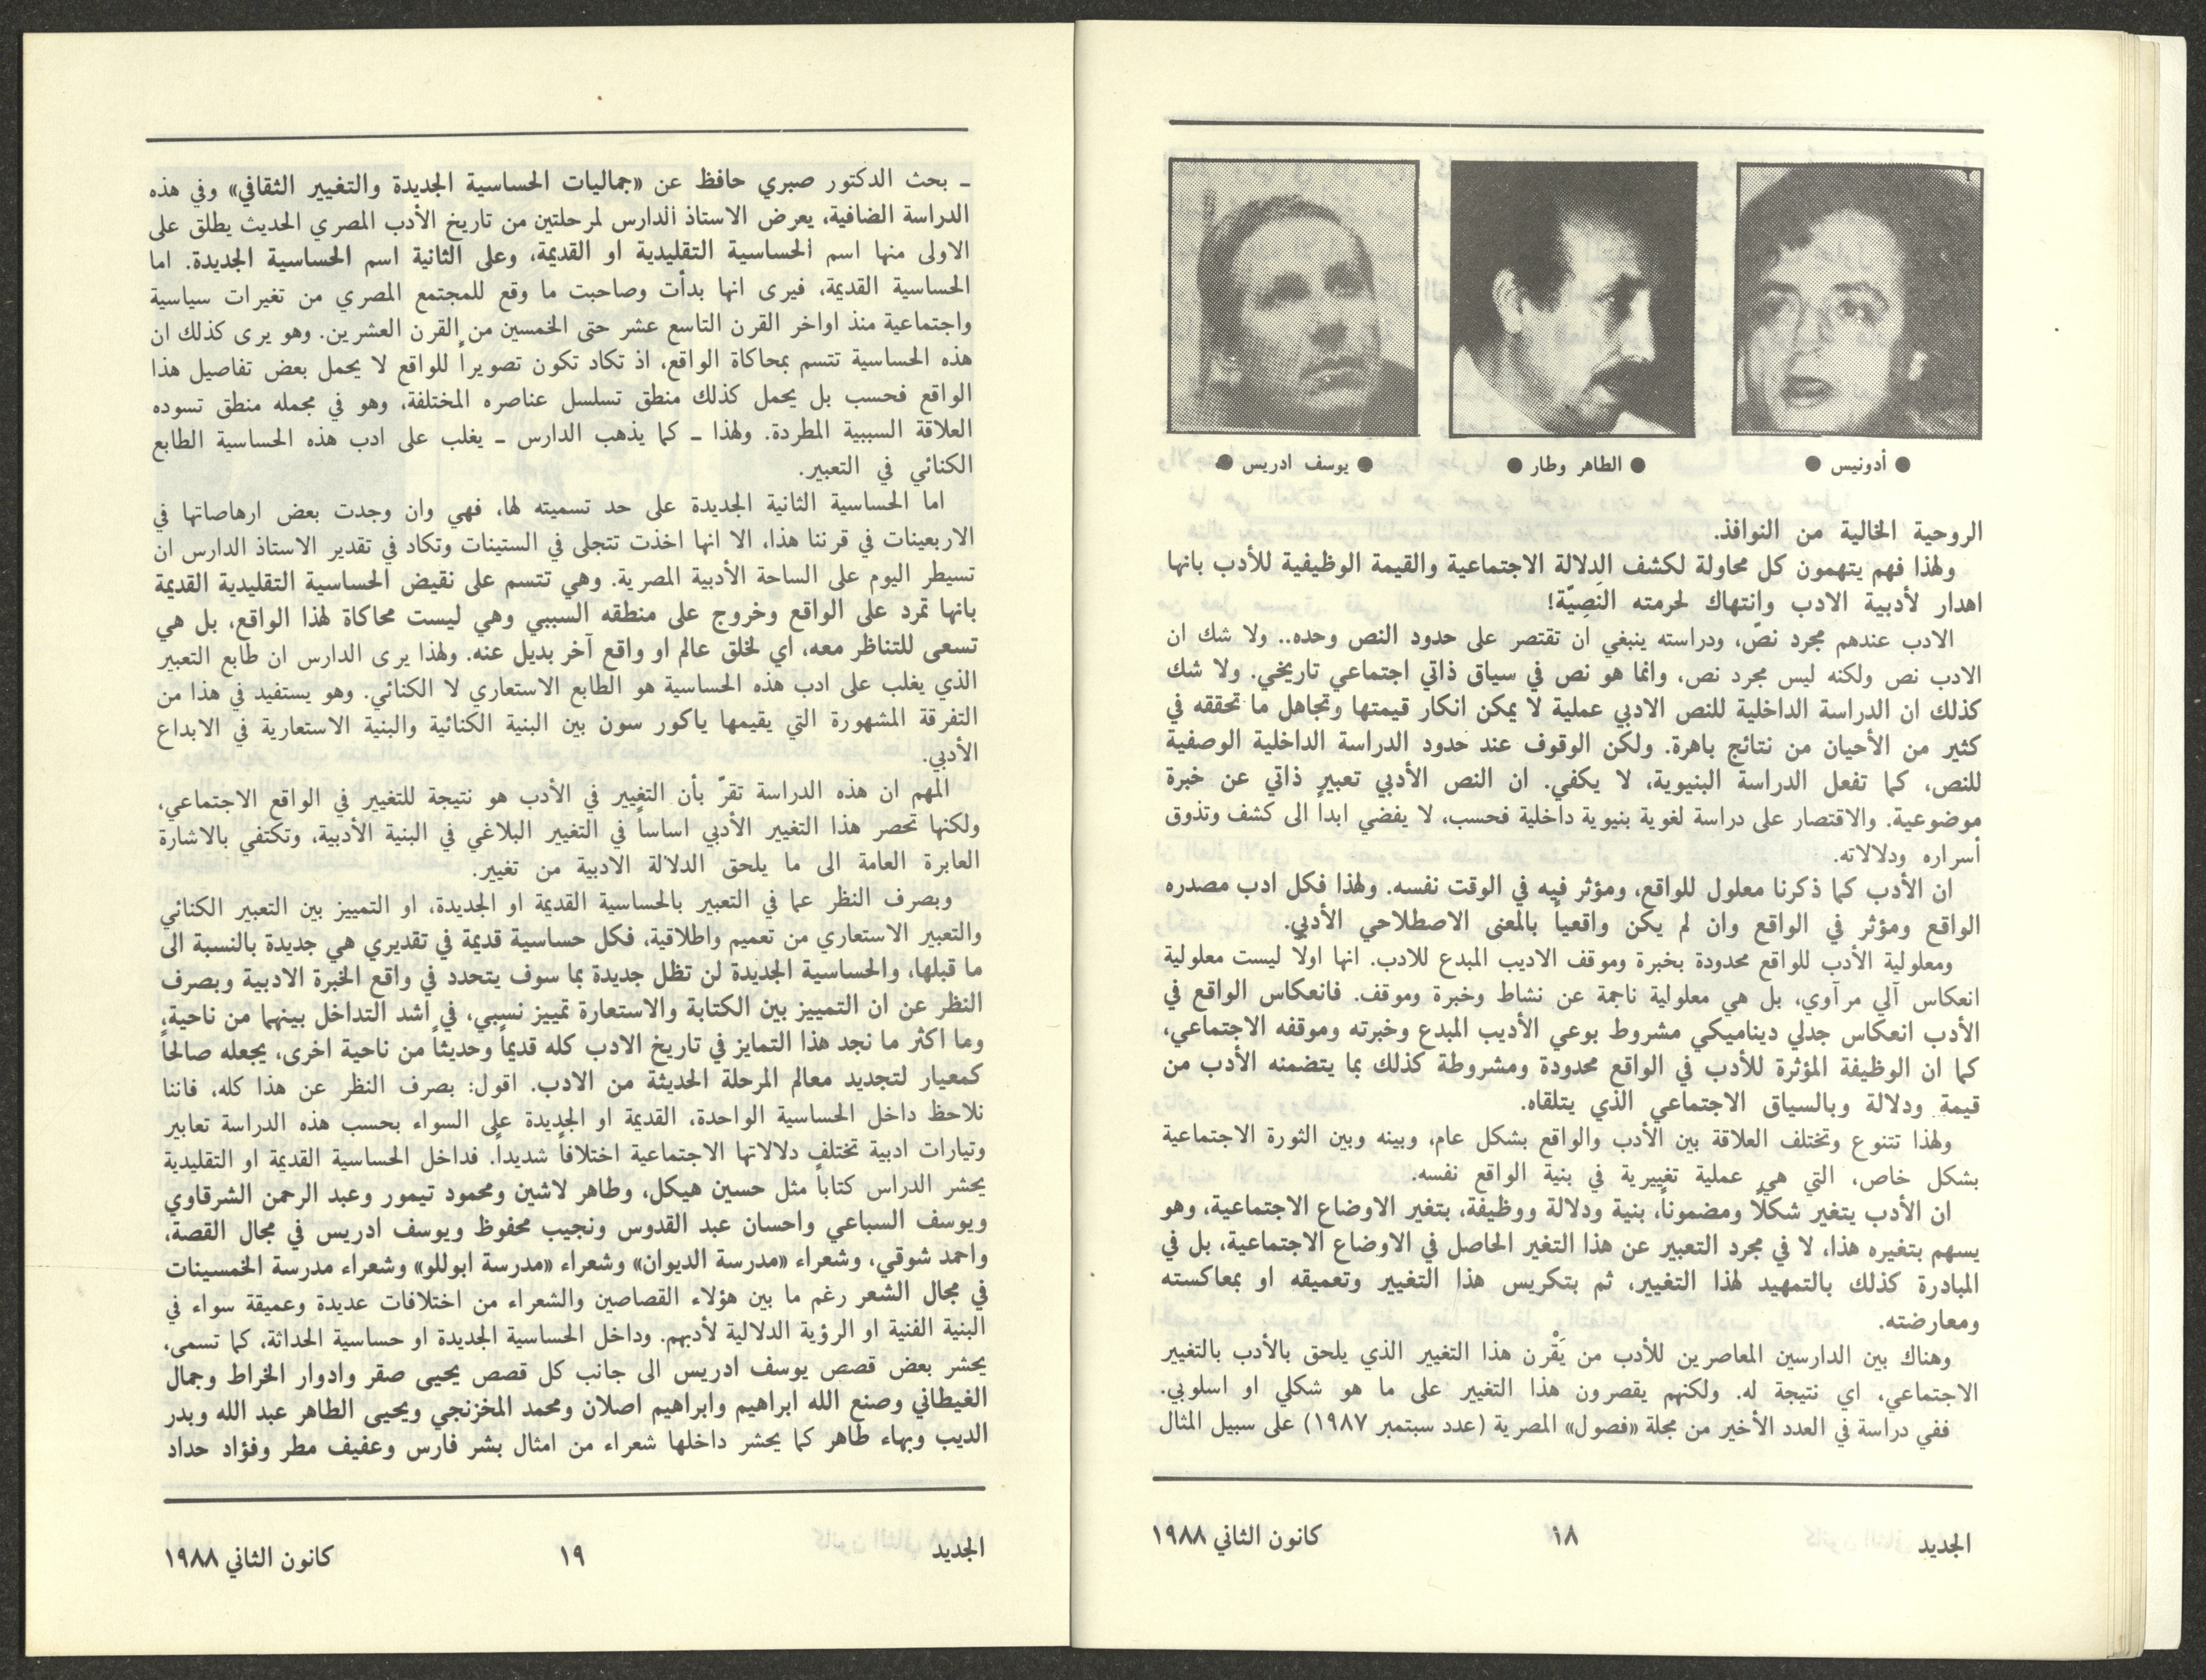 ● أدونيس ●
● الطاهر وطار ●
● يوسف ادريس ●
الروحية الخالية من النوافذ.
ولهذا فهم يتهمون كل محاولة لكشف الدلالة الاجتماعية والقيمة الوظيفية للأدب بانها
اهدار لأدبية الادب وانتهاك لحرمته النَصِيّة!
الادب عندهم مجرد نصّ، ودراسته ينبغي ان تقتصر على حدود النص وحده.. ولا شك ان
الادب نص ولكنه ليس مجرد نص، وانما هو نص في سياق ذاتي اجتماعي تاريخي. ولا شك
كذلك ان الدراسة الداخلية للنص الادبي عملية لا يمكن انكار قيمتها وتجاهل ما تحققه في
كثير من الأحيان من نتائج باهرة. ولكن الوقوف عند حدود الدراسة الداخلية الوصفية
للنص، كما تفعل الدراسة البنيوية، لا يكفي. ان النص الأدبي تعبير ذاتي عن خبرة
موضوعية. والاقتصار على دراسة لغوية بنيوية داخلية فحسب، لا يفضي ابداً الى كشف وتذوق
أسراره ودلالاته.
ان الأدب كما ذكرنا معلول للواقع، ومؤثر فيه في الوقت نفسه. ولهذا فكل ادب مصدره
الواقع ومؤثر في الواقع وان لم يكن واقعياً بالمعنى الاصطلاحي الأدبي.
ومعلولية الأدب للواقع محدودة بخبرة وموقف الاديب المبدع للادب. انها اولاً ليست معلولية
انعكاس آلي مرآوي، بل هي معلولية ناجمة عن نشاط وخبرة وموقف. فانعكاس الواقع في
الأدب انعكاس جدلي ديناميكي مشروط بوعي الأديب المبدع وخبرته وموقفه الاجتماعي،
كما ان الوظيفة المؤثرة للأدب في الواقع محدودة ومشروطة كذلك بما يتضمنه الأدب من
قيمة ودلالة وبالسياق الاجتماعي الذي يتلقاه.
ولهذا تتنوع وتختلف العلاقة بين الأدب والواقع بشكل عام، وبينه وبين الثورة الاجتماعية
بشكل خاص، التي هي عملية تغييرية في بنية الواقع نفسه.
ان الأدب يتغير شكلاً ومضموناً، بنية ودلالة ووظيفة، بتغير الاوضاع الاجتماعية، وهو
يسهم بتغيره هذا، لا في مجرد التعبير عن هذا التغير الحاصل في الاوضاع الاجتماعية، بل في
المبادرة كذلك بالتمهيد لهذا التغيير، ثم بتكريس هذا التغيير وتعميقه او بمعاكسته
ومعارضته.
وهناك بين الدارسين المعاصرين للأدب من يَقْرن هذا التغيير الذي يلحق بالأدب بالتغيير
الاجتماعي، اي نتيجة له. ولكنهم يقصرون هذا التغيير على ما هو شكلي او اسلوبي.
ففي دراسة في العدد الأخير من مجلة «فصول» المصرية (عدد سبتمبر ١٩٨٧) على سبيل المثال
الجديد ١٨ كانون الثاني ١٩٨٨
ـ بحث الدكتور صبري حافظ عن «جماليات الحساسية الجديدة والتغيير الثقافي» وفي هذه
الدراسة الضافية، يعرض الاستاذ الدارس لمرحلتين من تاريخ الأدب المصري الحديث يطلق على
الاولى منها اسم الحساسية التقليدية او القديمة، وعلى الثانية اسم الحساسية الجديدة. اما
الحساسية القديمة، فيرى انها بدأت وصاحبت ما وقع للمجتمع المصري من تغيرات سياسية
واجتماعية منذ اواخر القرن التاسع عشر حتى الخمسين من القرن العشرين. وهو يرى كذلك ان
هذه الحساسية تتسم بمحاكاة الواقع، اذ تكاد تكون تصويراً للواقع لا يحمل بعض تفاصيل هذا
الواقع فحسب بل يحمل كذلك منطق تسلسل عناصره المختلفة، وهو في مجمله منطق تسوده
العلاقة السببية المطردة. ولهذا ـ كما يذهب الدارس ـ يغلب على ادب هذه الحساسية الطابع
الكنائي في التعبير.
اما الحساسية الثانية الجديدة على حد تسميته لها، فهي وان وجدت بعض ارهاصاتها في
الاربعينات في قرننا هذا، الا انها اخذت تتجلى في الستينات وتكاد في تقدير الاستاذ الدارس ان
تسيطر اليوم على الساحة الأدبية المصرية. وهي تتسم على نقيض الحساسية التقليدية القديمة
بانها تمرد على الواقع وخروج على منطقه السببي وهي ليست محاكاة لهذا الواقع، بل هي
تسعى للتناظر معه، اي لخلق عالم او واقع آخر بديل عنه. ولهذا يرى الدارس ان طابع التعبير
الذي يغلب على ادب هذه الحساسية هو الطابع الاستعاري لا الكنائي. وهو يستفيد في هذا من
التفرقة المشهورة التي يقيمها ياكور سون بين البنية الكنائية والبنية الاستعارية في الابداع
الأدبي.
المهم ان هذه الدراسة تقرّ بأن التغيير في الأدب هو نتيجة للتغيير في الواقع الاجتماعي،
ولكنها تحصر هذا التغيير الأدبي اساساً في التغيير البلاغي في البنية الأدبية، وتكتفي بالاشارة
العابرة العامة الى ما يلحق الدلالة الادبية من تغيير.
وبصرف النظر عما في التعبير بالحساسية القديمة او الجديدة، او التمييز بين التعبير الكنائي
والتعبير الاستعاري من تعميم واطلاقية، فكل حساسية قديمة في تقديري هي جديدة بالنسبة الى
ما قبلها، والحساسية الجديدة لن تظل جديدة بما سوف يتحدد في واقع الخبرة الادبية وبصرف
النظر عن ان التمييز بين الكتابة والاستعارة تمييز نسبي، في اشد التداخل بينهما من ناحية،
وما اكثر ما نجد هذا التمايز في تاريخ الادب كله قديماً وحديثاً من ناحية اخرى، يجعله صالحاً
كمعيار لتجديد معالم المرحلة الحديثة من الادب. اقول: بصرف النظر عن هذا كله، فاننا
نلاحظ داخل الحساسية الواحدة، القديمة او الجديدة على السواء بحسب هذه الدراسة تعابير
وتيارات ادبية تختلف دلالاتها الاجتماعية اختلافاً شديداً. فداخل الحساسية القديمة او التقليدية
يحشر الدراس كتاباً مثل حسين هيكل، وطاهر لاشين ومحمود تيمور وعبد الرحمن الشرقاوي
ويوسف السباعي واحسان عبد القدوس ونجيب محفوظ ويوسف ادريس في مجال القصة،
واحمد شوقي، وشعراء «مدرسة الديوان» وشعراء «مدرسة ابوللو» وشعراء مدرسة الخمسينات
في مجال الشعر رغم ما بين هؤلاء القصاصين والشعراء من اختلافات عديدة وعميقة سواء في
البنية الفنية او الرؤية الدلالية لأدبهم. وداخل الحساسية الجديدة او حساسية الحداثة، كما تسمى،
يحشر بعض قصص يوسف ادريس الى جانب كل قصص يحيى صقر وادوار الخراط وجمال
الغيطاني وصنع الله ابراهيم وابراهيم اصلان ومحمد المخزنجي ويحيى الطاهر عبد الله وبدر
الديب وبهاء طاهر كما يحشر داخلها شعراء من امثال بشر فارس وعفيف مطر وفؤاد حداد
الجديد ١٩ كانون الثاني ١٩٨٨